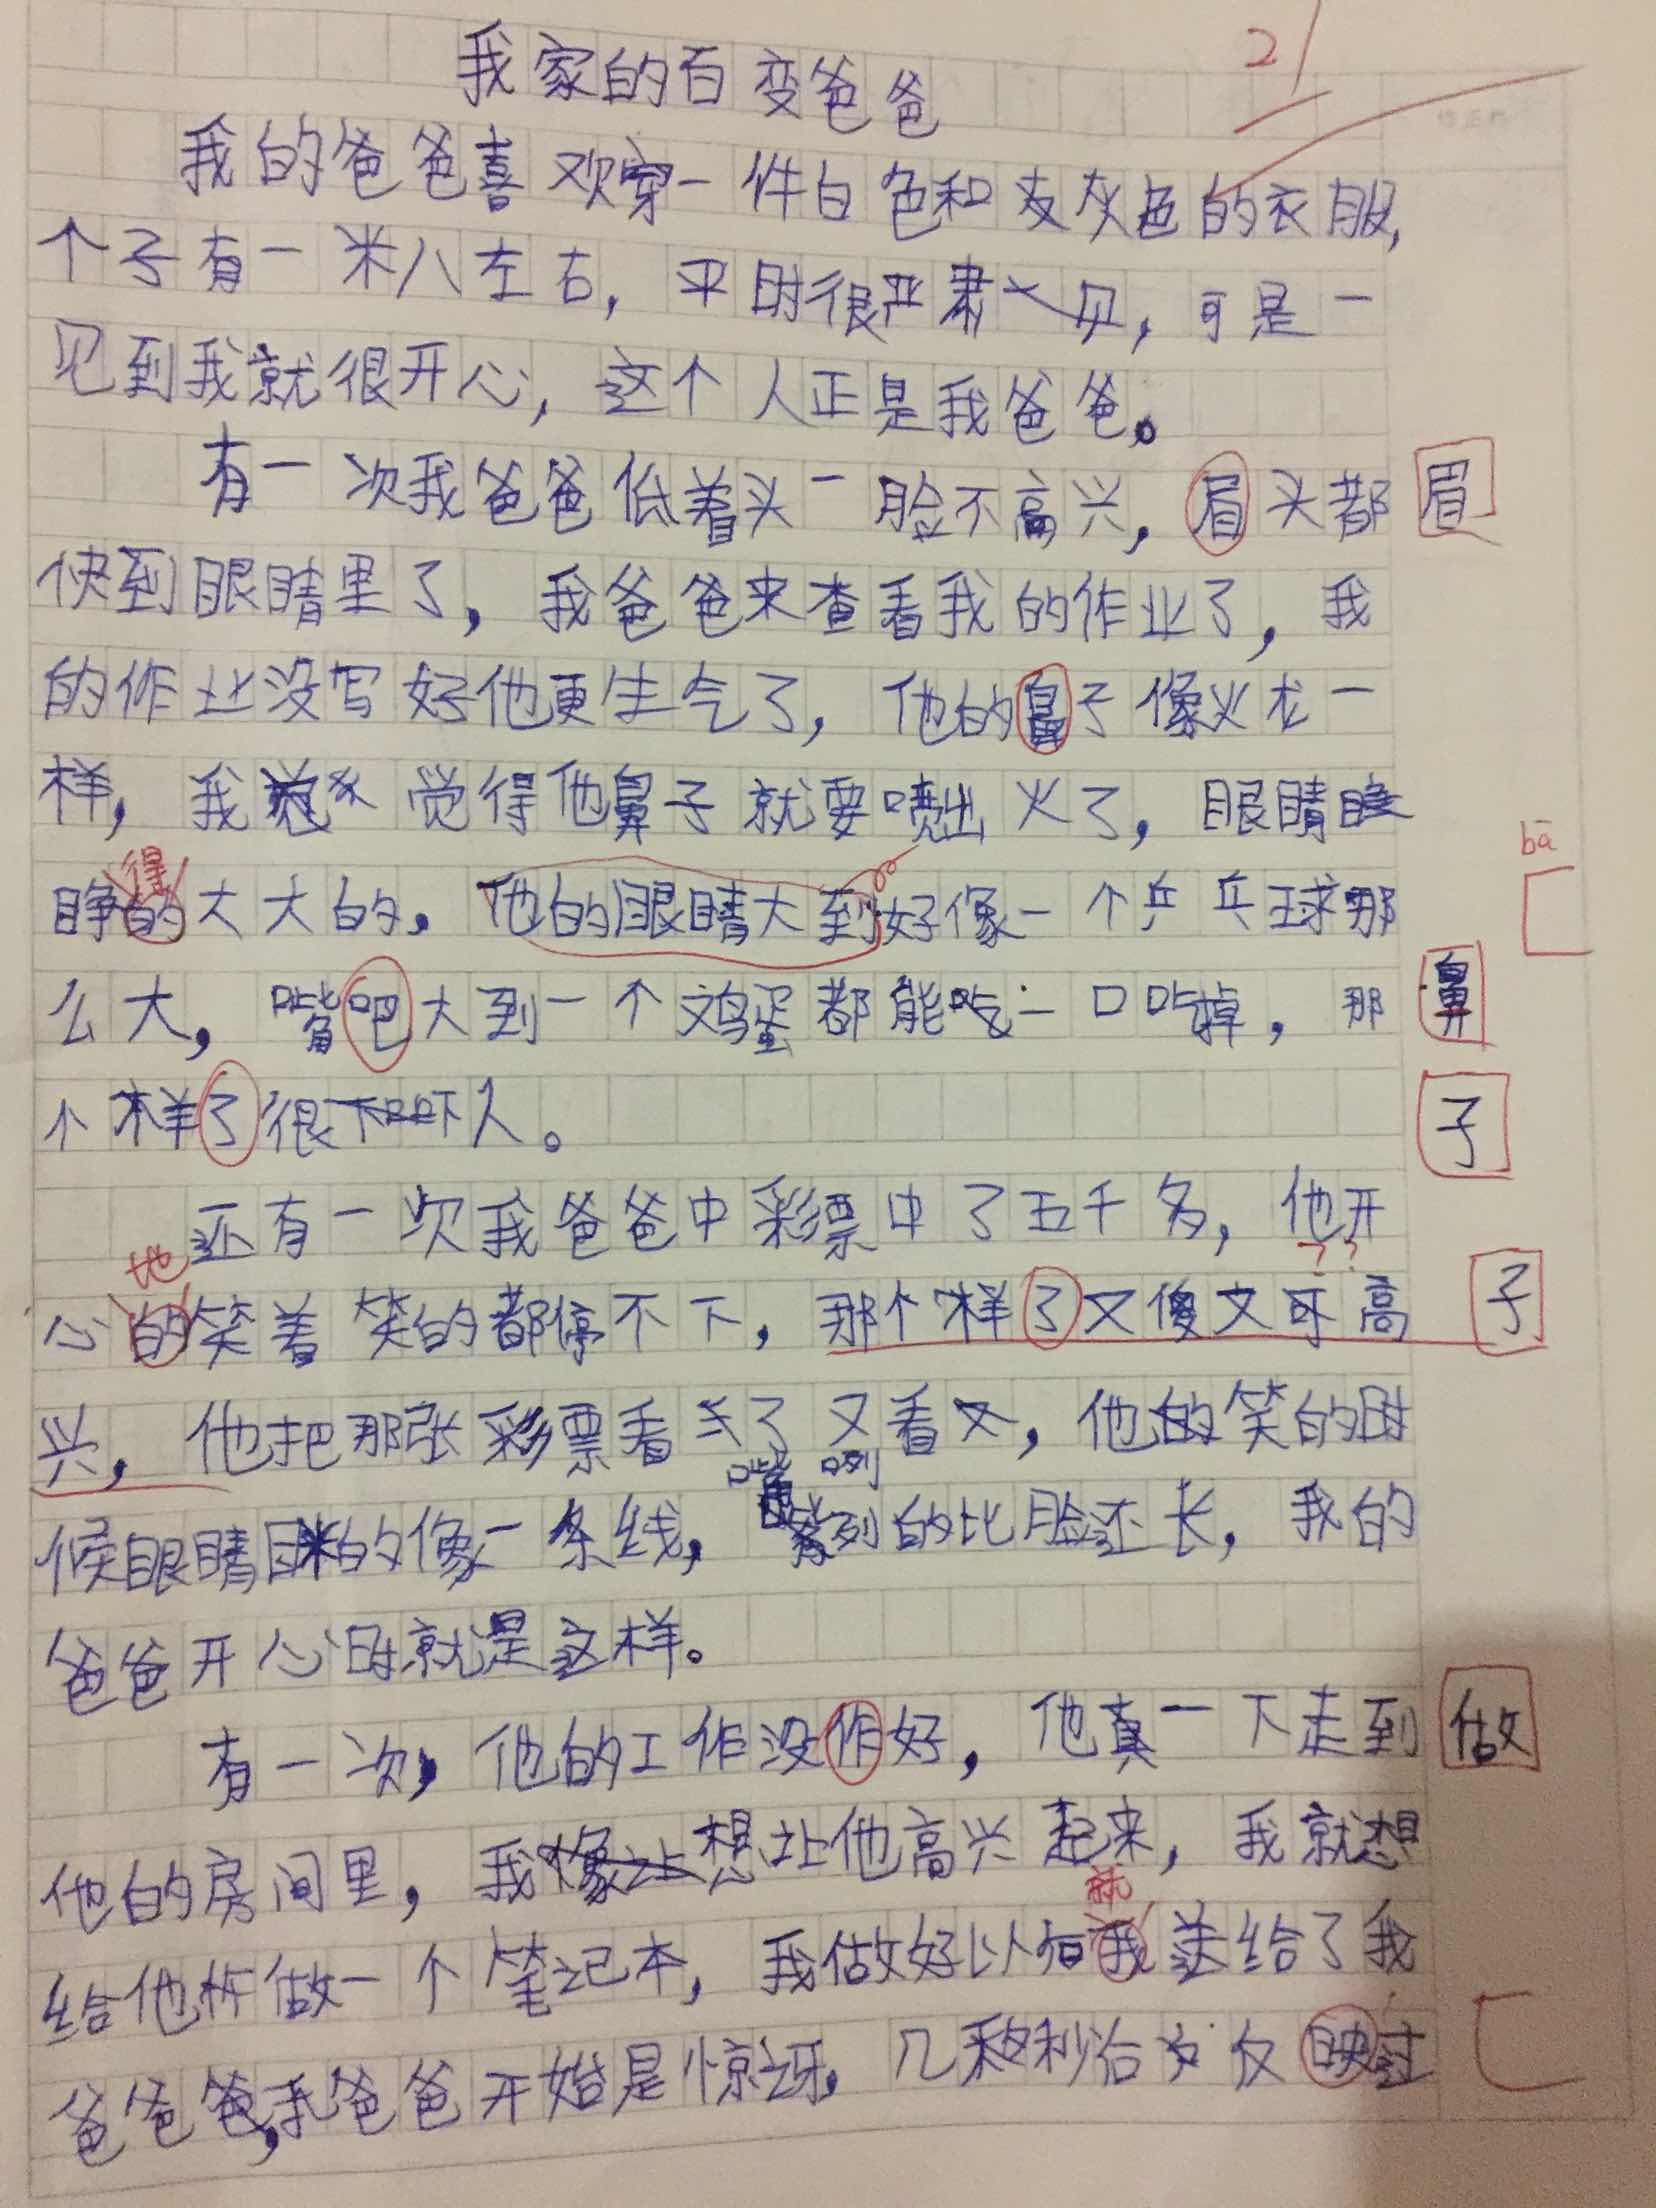 我家的百变爸爸
21
我的爸爸喜欢穿一件白色和灰色的衣服,
个子有一米八左右, 平时很严肃, 可是一
见到我就很开心, 这个人正是我爸爸。
有一次我爸爸低着头一脸不高兴, 眉头都 眉
快到眼睛里了, 我爸爸来查看我的作业了, 我
的作业没写好他更生气了, 他的鼻子像火龙一
样, 我觉得他鼻子就要喷出火了, 眼睛睁
bā
得
睁的大大的, 他的眼睛大到好像一个乒乓球那
么大, 嘴吧大到一个鸡蛋都能吃一口吃掉, 那 鼻
个样了很吓人。 子
还有一次我爸爸中彩票中了五千多, 他开
地 ??
心的笑着笑的都停不下, 那个样了又傻又可高 子
兴, 他把那张彩票看了又看, 他的笑的时
嘴咧
候眼睛眯的像一条线, 的比脸还长, 我的
爸爸开心时就是这样。
有一次, 他的工作没作好, 他真一下走到 做
他的房间里, 我想让他高兴起来, 我就想
就
给他做一个笔记本, 我做好以后我送给了我
爸爸, 我爸爸开始是惊讶, 几秒后 反映过